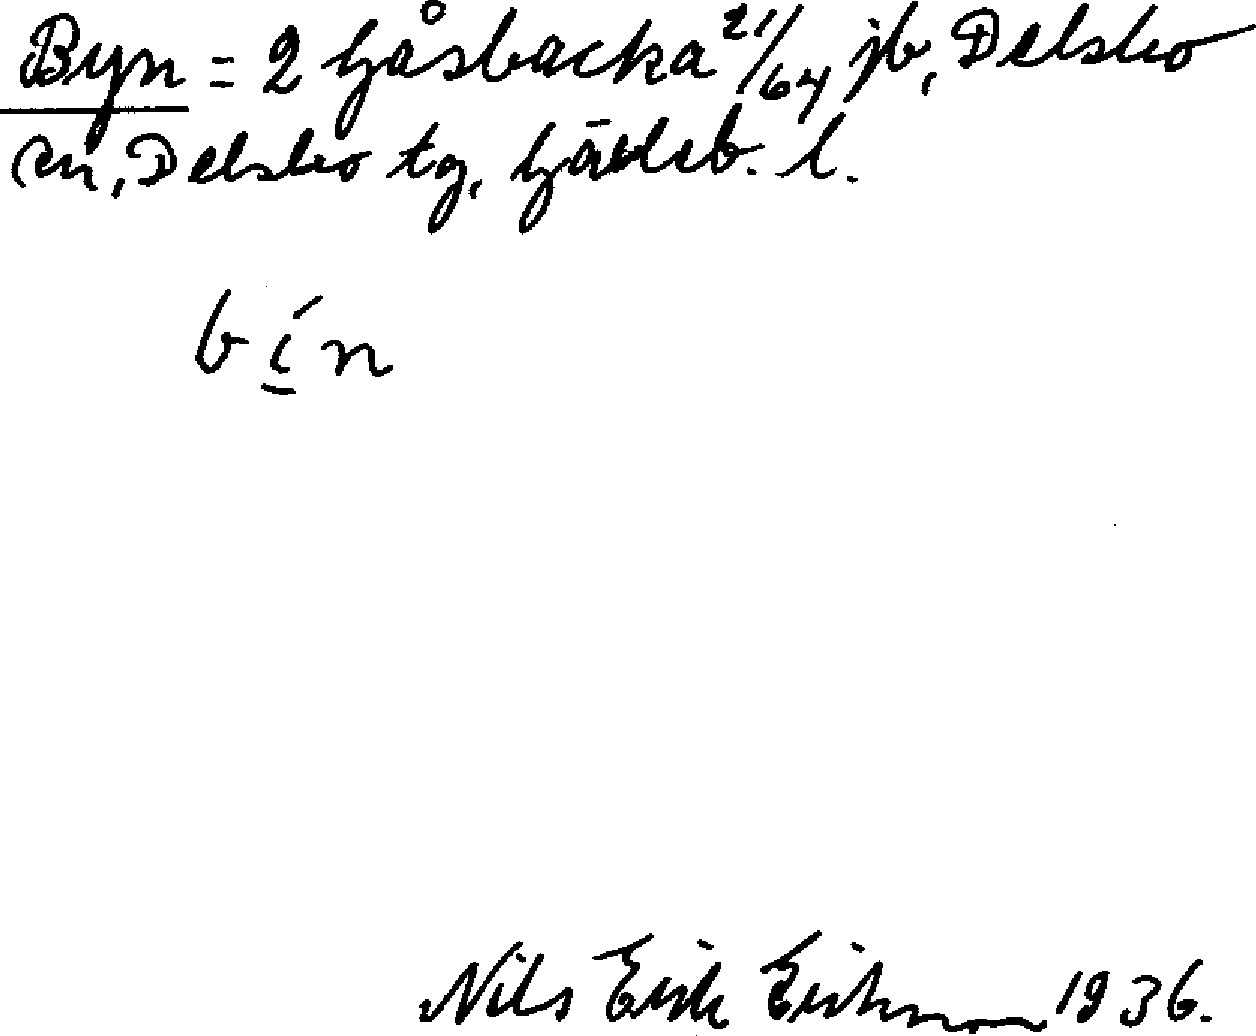 Byn = 2 Gåsbacka 21/64 jb, Delsbo
sn, Delsbo tg, Gävleb. l.
bín
Nils Erik Eriksson 1936.